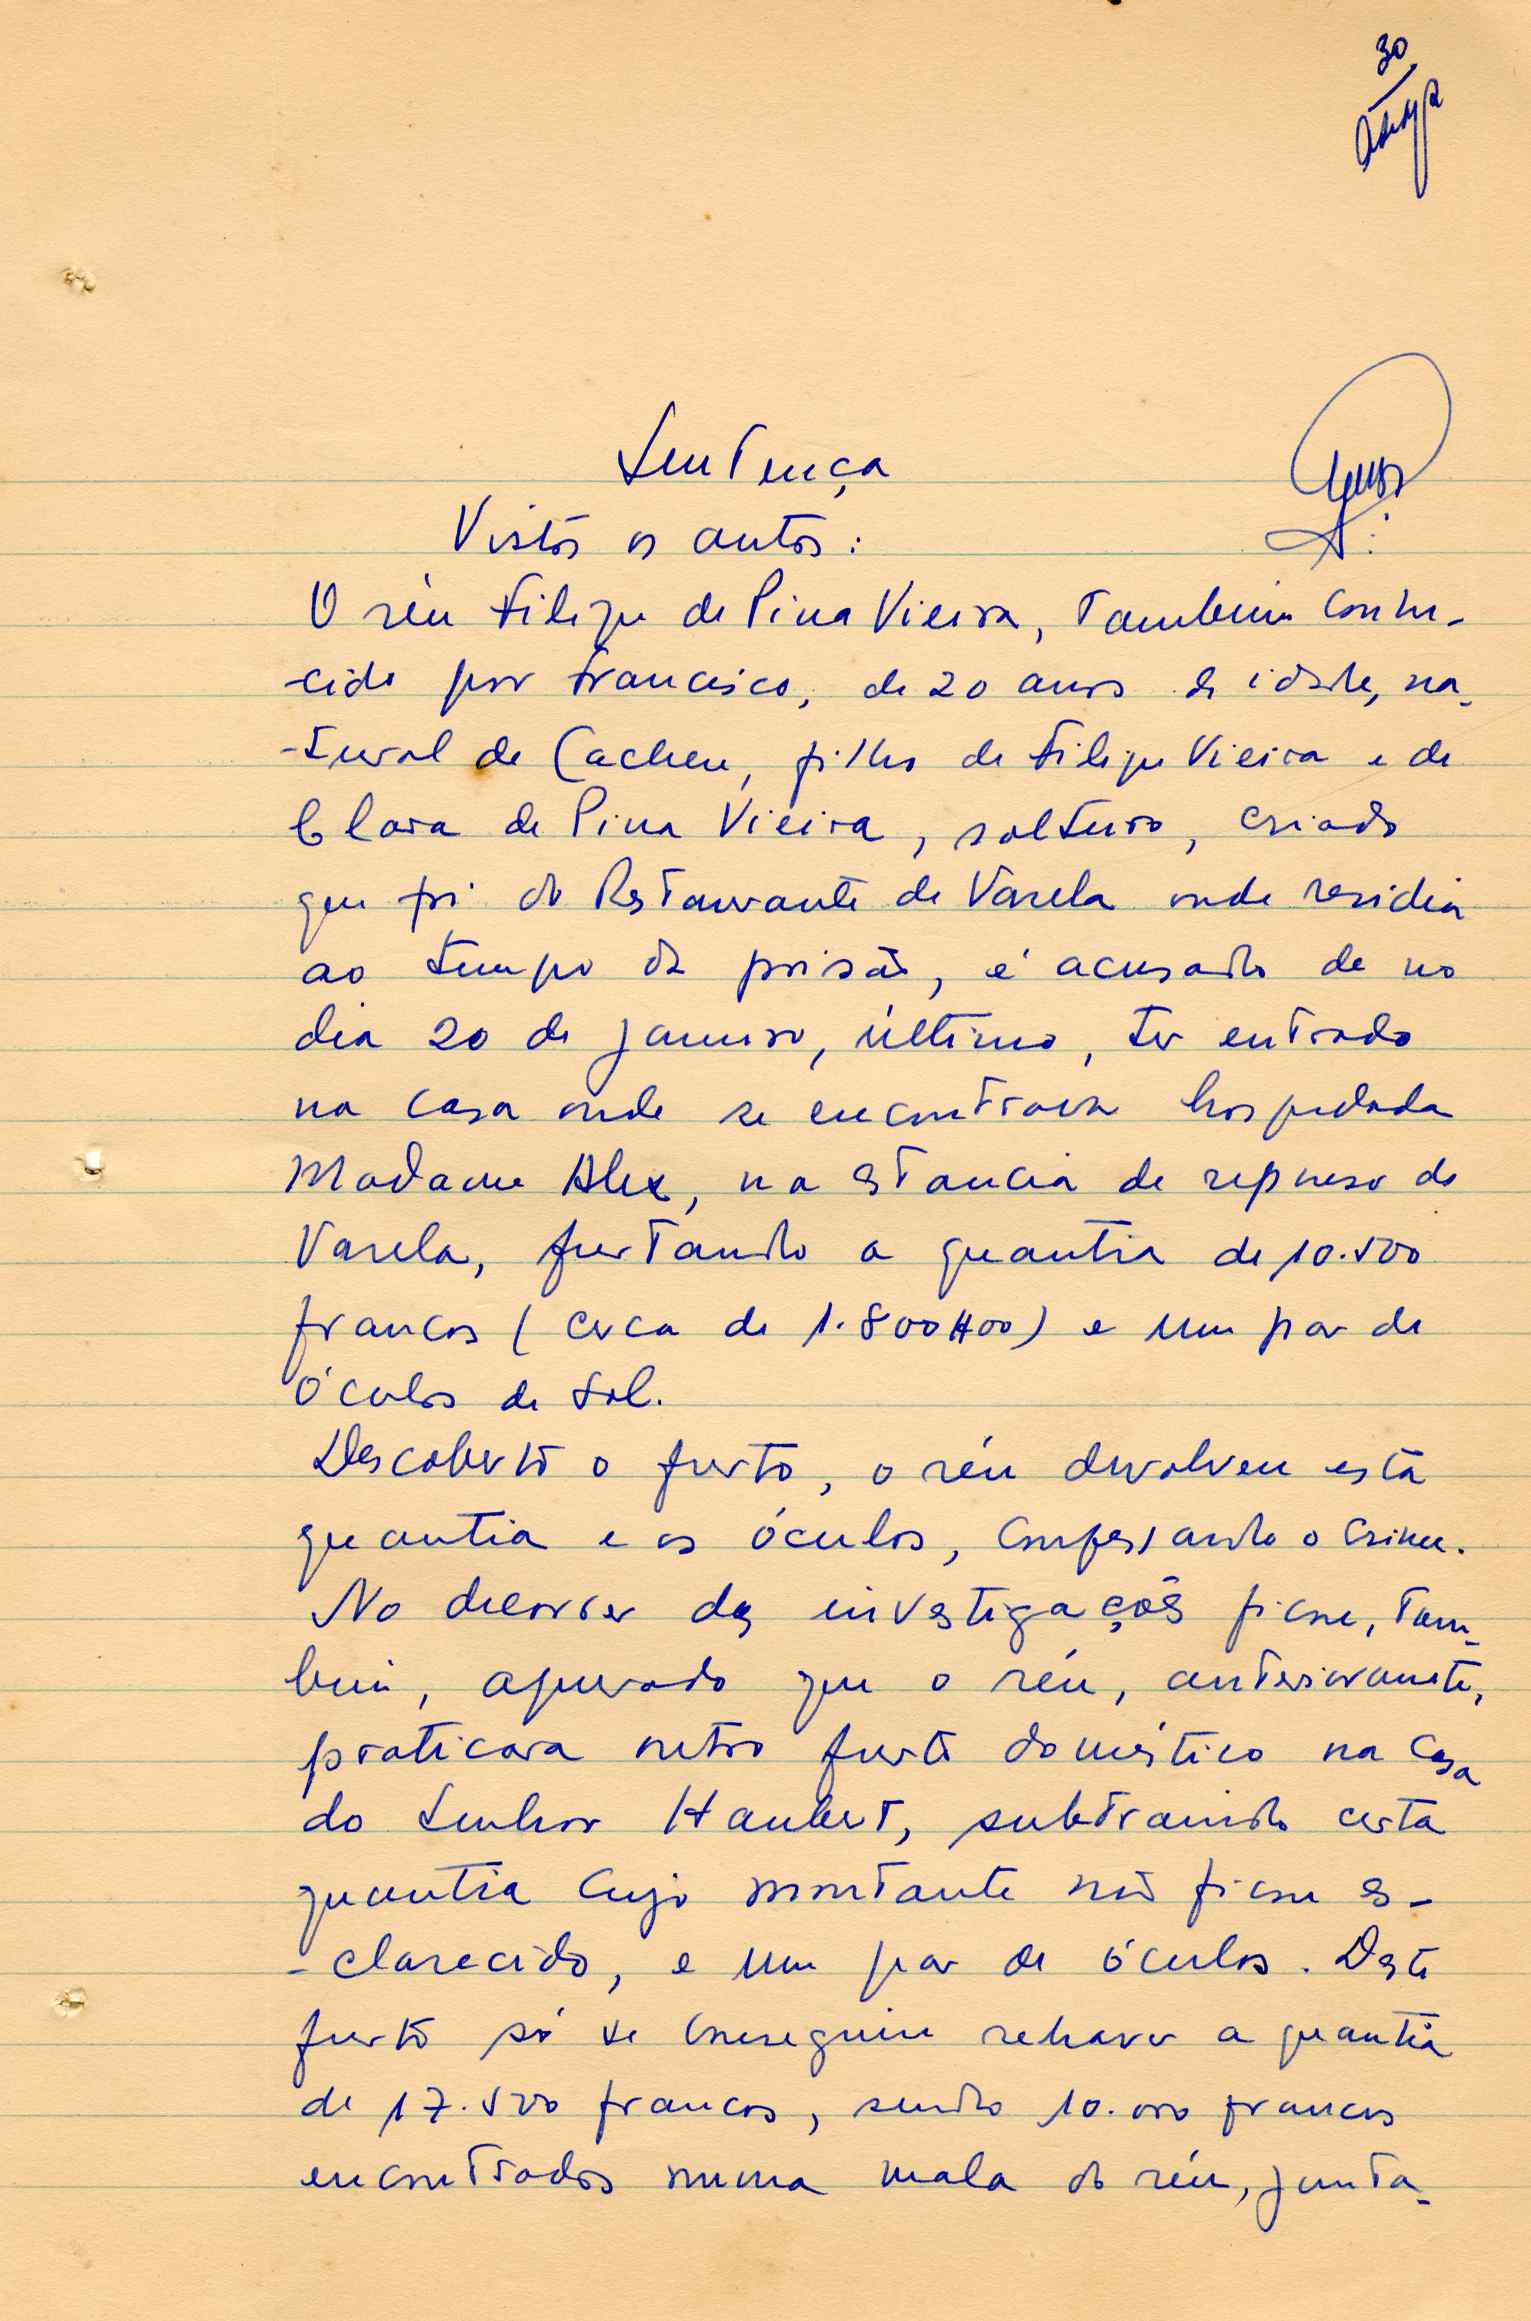 30
Sentença
Vistos os autos:
O réu Filipe de Pina Vieira, também conhe-
-cido por Francisco, de 20 anos de idade, na-
-tural de Cacheu, filho de Filipe Vieira e de
Clara de Pina Vieira, solteiro, criado
que foi do Restaurante de Varela onde residia
ao tempo da prisão, é acusado de no
dia 20 de Janeiro, último, ter entrado
na casa onde se encontrava hospedada
Madame Alex, na estancia de repouso de
Varela, furtando a quantia de 10.500
francos (cerca de 1.800$00) e um par de
óculos de sol.
Descoberto o furto, o réu devolveu esta
quantia e os óculos, confessando o crime.
No decorrer das investigações ficou, tam-
bém, apurado que o réu, anteriormente,
praticara outro furto doméstico na casa
do Senhor Haubert, subtraindo certa
quantia cujo montante não ficou es-
-clarecido, e um par de óculos. Deste
furto só se conseguiu rehaver a quantia
de 17.500 francos, sendo 10.000 francos
encontrados numa mala do réu, junta-